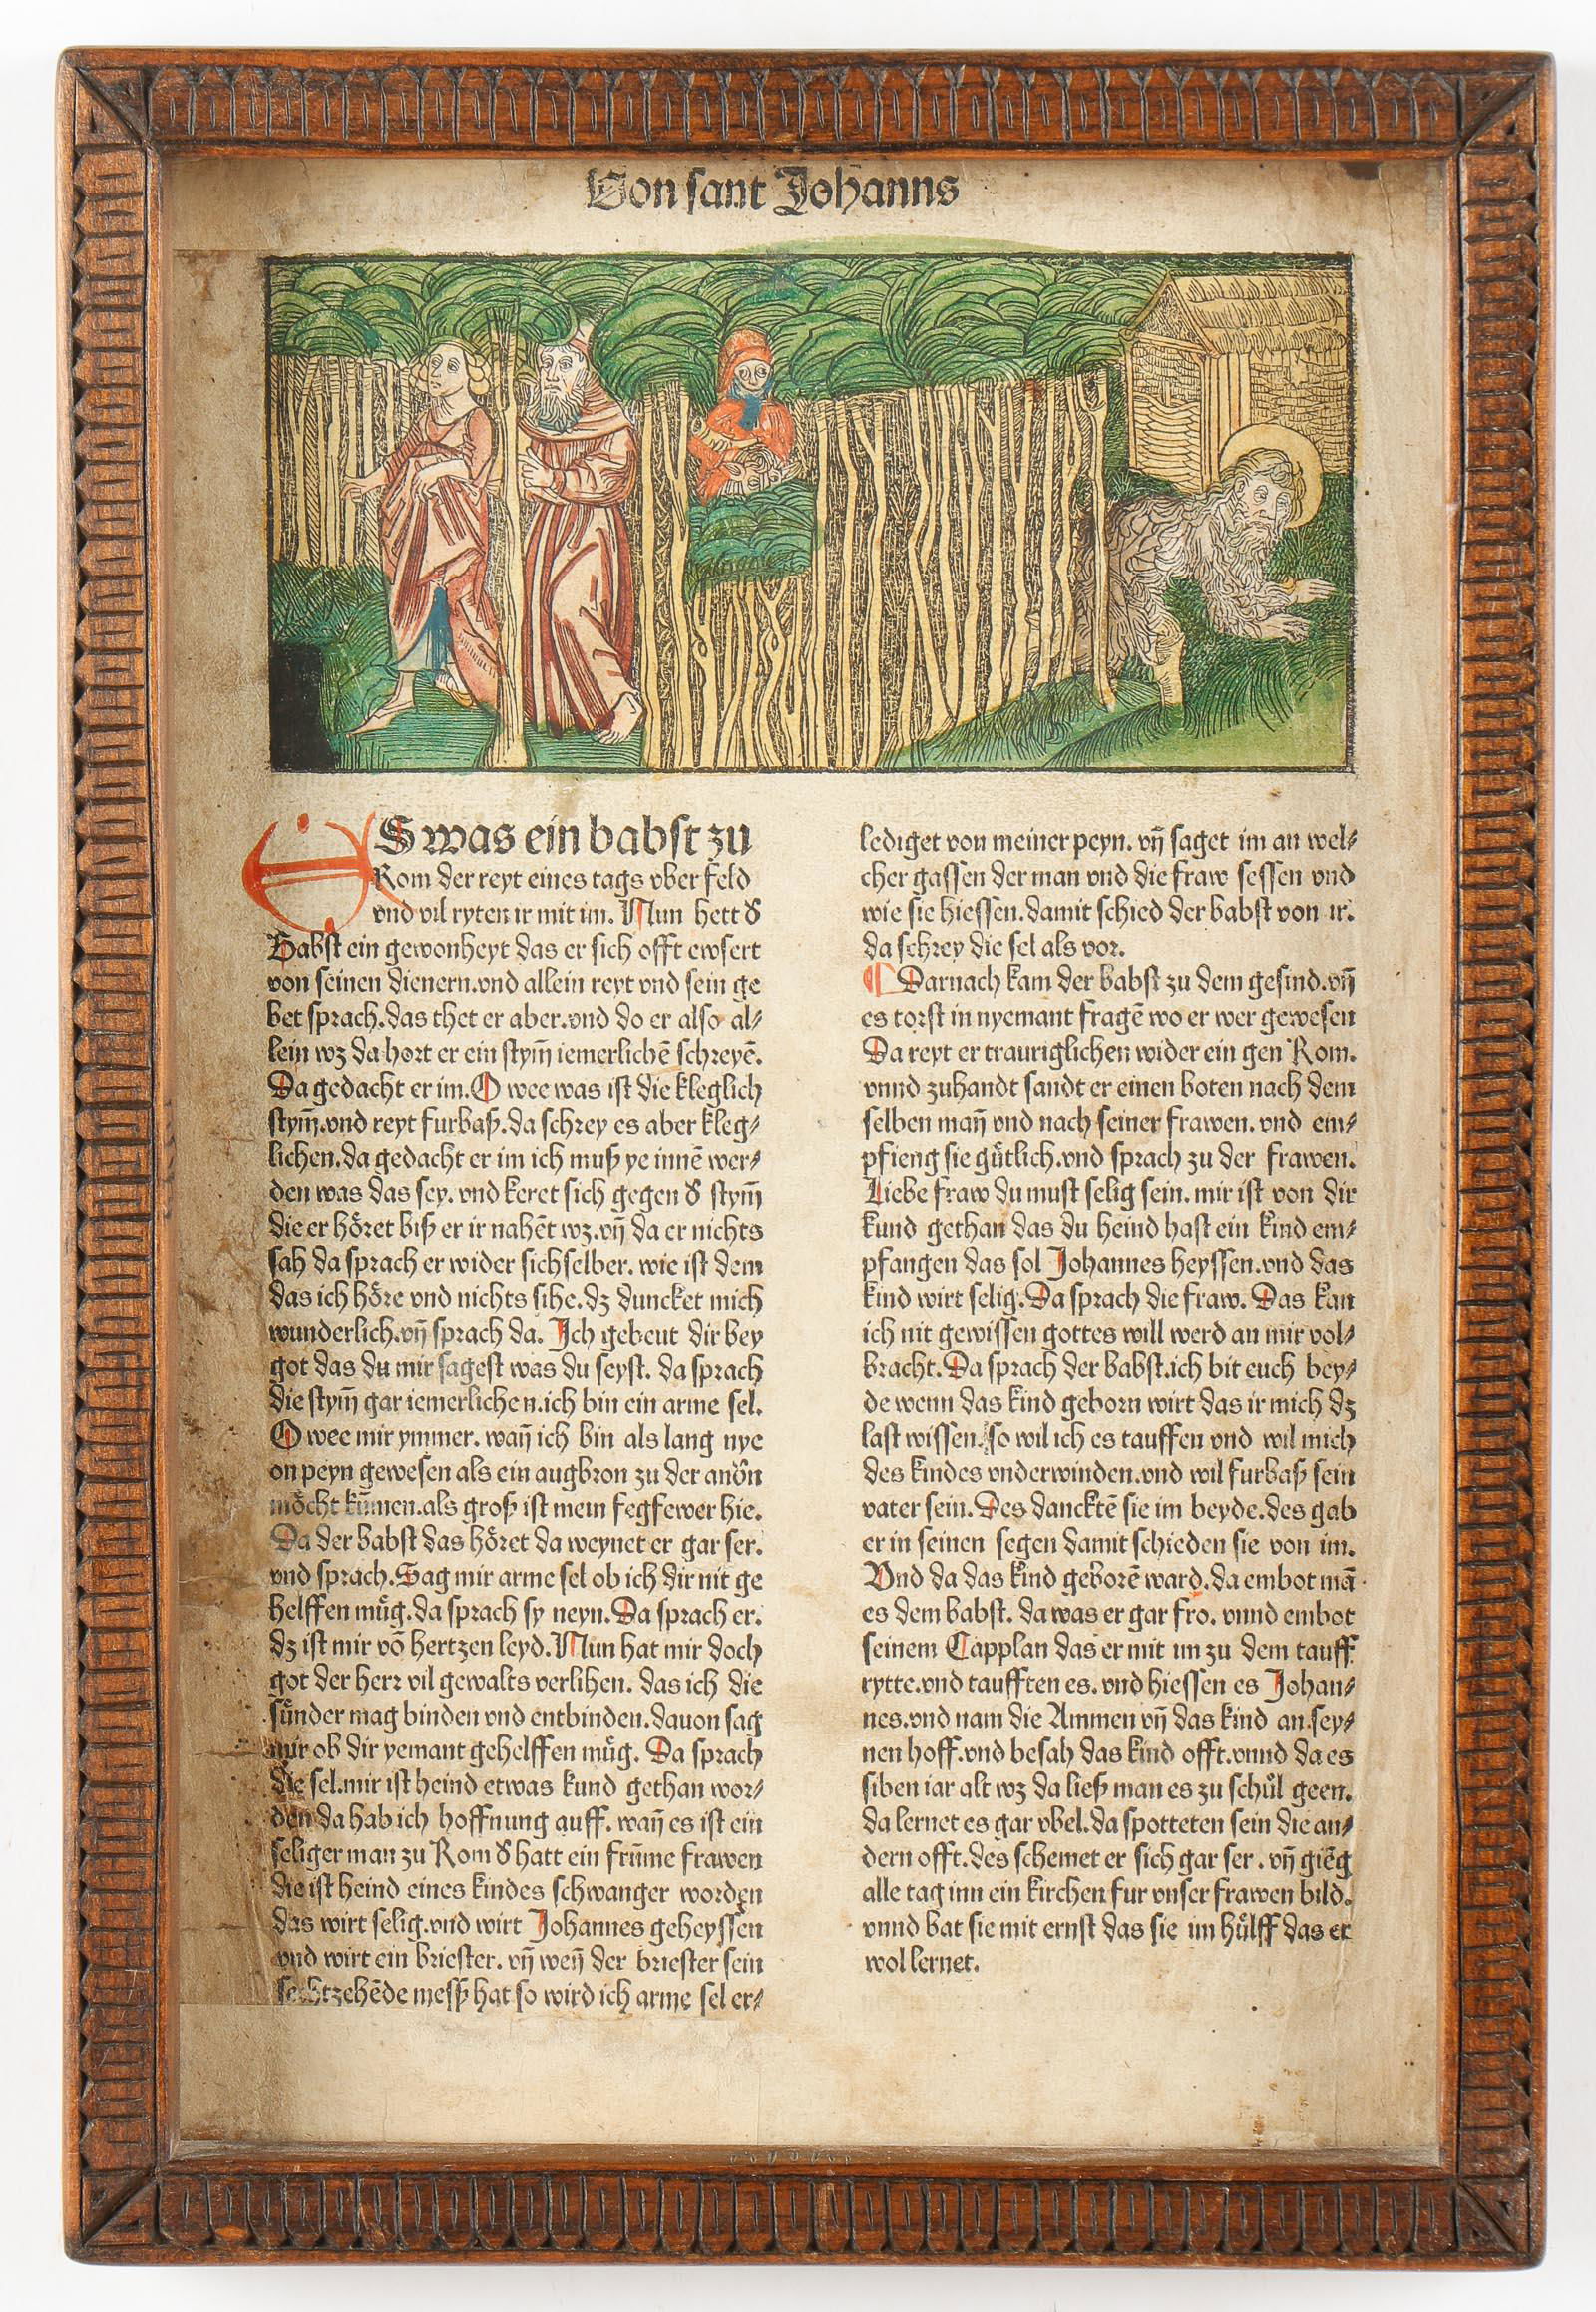 Von sant Johanns
ES was ein babst zu
Rom der reyt eines tags vber feld
vnd vil ryten ir mit im. Nun hett ð
Babst ein gewonheyt das er sich offt ewsert
von seinen dienern.vnd allein reyt vnd sein ge
bet sprach.das thet er aber.vnd do er also al⸗
lein wʒ da hort er ein stym̄ iemerlichē schreyē.
Da gedacht er im.O wee was ist die kleglich
stym̄.vnd reyt furbaß.da schrey es aber kleg⸗
lichen.da gedacht er im ich muß ye innē wer⸗
den was das sey. vnd keret sich gegen ð stym̄
die er hoͤret biß er ir nahēt wʒ.vn̄ da er nichts
sah da sprach er wider sichselber. wie ist dem
das ich hoͤre vnd nichts sihe.dʒ duncket mich
wunderlich.vn̄ sprach da. Ich gebeut dir bey
got das du mir sagest was du seyst. da sprach
die stym̄ gar iemerlichen.ich bin ein arme sel.
O wee mir ymmer. wan̄ ich bin als lang nye
on peyn gewesen als ein augbron zu der andn̄
moͤcht kūmen.als groß ist mein fegfewer hie.
Da der babst das hoͤret da weynet er gar ser.
vnd sprach.Sag mir arme sel ob ich dir nit ge
helffen muͤg.da sprach sy neyn.Da sprach er.
dʒ ist mir vō hertzen leyd.Nun hat mir doch
got der herr vil gewalts verlihen. das ich die
suͤnder mag binden vnd entbinden.dauon sag
mir ob dir yemant gehelffen muͤg. Da sprach
die sel.mir ist heind etwas kund gethan wor⸗
den da hab ich hoffnung auff. wan̄ es ist ein
seliger man zu Rom ð hatt ein frūme frawen
die ist heind eines kindes schwanger worden
das wirt selig.vnd wirt Johannes geheyssen
vnd wirt ein briester. vn̄ wen̄ der briester sein
sechtzehēde meß hat so wird ich arme sel er⸗
lediget von meiner peyn. vn̄ saget im an wel⸗
cher gassen der man vnd die fraw sessen vnd
wie sie hiessen.damit schied der babst von ir.
da schrey die sel als vor.
¶ Darnach kam der babst zu dem gesind.vn̄
es torst in nyemant fragē wo er wer gewesen
Da reyt er trauriglichen wider ein gen Rom.
vnnd zuhandt sandt er einen boten nach dem
selben man̄ vnd nach seiner frawen. vnd em⸗
pfieng sie guͤtlich.vnd sprach zu der frawen.
Liebe fraw du must selig sein. mir ist von dir
kund gethan das du heind hast ein kind em⸗
pfangen das sol Johannes heyssen.vnd das
kind wirt selig.Da sprach die fraw. Das kan
ich nit gewissen gottes will werd an mir vol⸗
bracht.Da sprach der babst.ich bit euch bey⸗
de wenn das kind geborn wirt das ir mich dʒ
last wissen.so wil ich es tauffen vnd wil mich
des kindes vnderwinden.vnd wil furbaß sein
vater sein.Des dancktē sie im beyde.des gab
er in seinen segen damit schieden sie von im.
Vnd da das kind geborē ward.da embot mā
es dem babst. da was er gar fro. vnnd embot
seinem Capplan das er mit im zu dem tauff
rytte.vnd taufften es. vnd hiessen es Johan⸗
nes.vnd nam die Ammen vn̄ das kind an sey⸗
nen hoff.vnd besah das kind offt.vnnd da es
siben iar alt wʒ da ließ man es zu schuͤl geen.
da lernet es gar vbel.da spotteten sein die an⸗
dern offt.des schemet er sich gar ser . vn̄ giēg
alle tag inn ein kirchen fur vnser frawen bild.
vnnd bat sie mit ernst das sie im huͤlff das er
wol lernet.